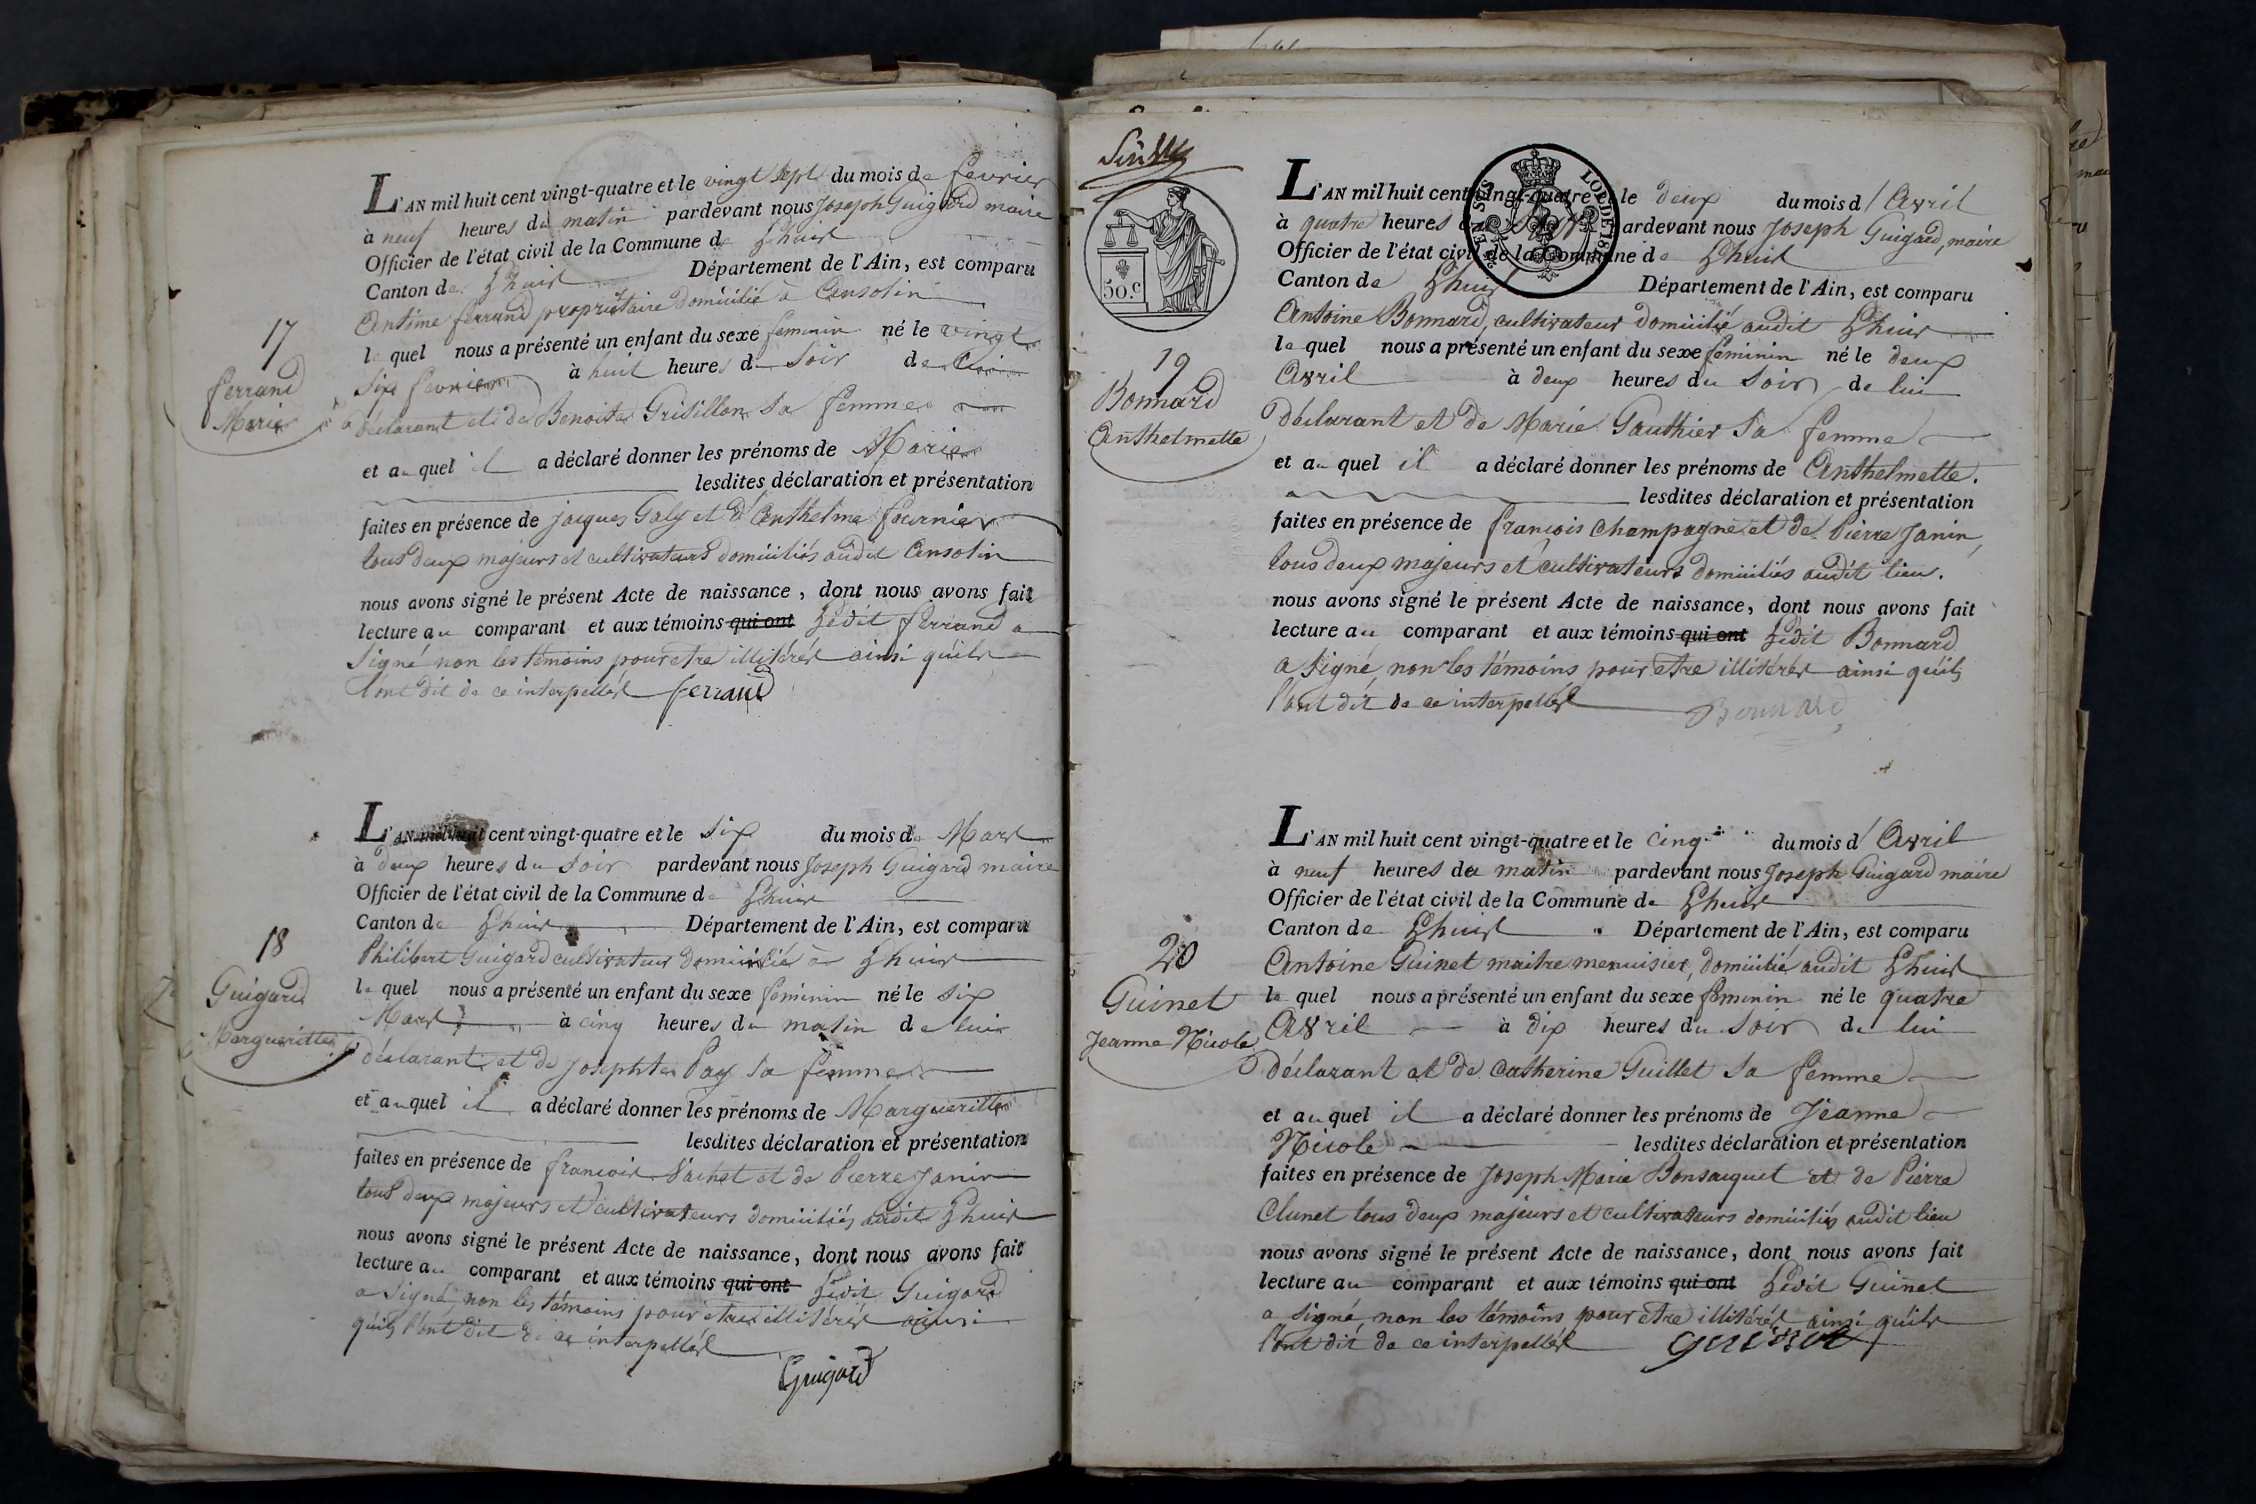 L'AN mil huit cent vingt-quatre et le vingt sept du mois de fevrier
à neuf heures du matin pardevant nous Joseph Guigard maire
Officier de l'état civil de la Commune de Lhuis
Canton de Lhuis Département de l'Ain, est comparu
Antôme ferrand propriétaire domicilié à Ansolin
le quel nous a présenté un enfant du sexe feminin né le vingt
Six fevrier à huit heures du Soir de lui
17
ferrand
Marie
déclarant et de Benoite Grisillon Sa femme
et au quel il a déclaré donner les prénoms de Marie
lesdites déclaration et présentation
faites en présence de jacques Galy et d'Anthelme fournier
tous deux majeurs et cultivateurs domiciliés audit Ansolin
nous avons signé le présent Acte de naissance, dont nous avons fait
lecture au comparant et aux témoins qui ont Ledit ferrand a
Signé non les témoins pour etre illitérés ainsi qu'ils
l'ont dit de ce interpellés ferrand
L'AN mil huit cent vingt-quatre et le Six du mois de Mars
à deux heures du Soir pardevant nous Joseph Guigard maire
Officier de l'état civil de la Commune de Lhuis
Canton de Lhuis Département de l'Ain, est comparu
18
Guigard
Margueritte
Philibert Guigard cultivateur domicilié à Lhuis
le quel nous a présenté un enfant du sexe feminin né le Six
Mars à cinq heures du matin de lui
déclarant et de Josephte Pay Sa femme
et au quel il a déclaré donner les prénoms de Margueritte
lesdites déclaration et présentation
faites en présence de françois Vachat et de Pierre Janin
tous deux majeurs et cultivateurs domiciliés audit Lhuis
nous avons signé le présent Acte de naissance, dont nous avons fait
lecture au comparant et aux témoins qui ont Ledit Guigard
a Signé, non les témoins pour etre illitérés ainsi
qu'ils l'ont dit de ce interpellés
Guigard
50.c
LOI DE 181
L'AN mil huit cent vingt-quatre et le deux du mois d'Avril
à quatre heures du Soir pardevant nous Joseph Guigard, maire
Officier de l'état civil de la Commune de Lhuis
Canton de Lhuis Département de l'Ain, est comparu
Antoine Bonnard, cultivateur domicilié audit Lhuis
le quel nous a présenté un enfant du sexe feminin né le deux
Avril à deux heures du Soir de lui
19
Bonnard
Anthelmette
déclarant et de Marie Gauthier Sa femme
et au quel il a déclaré donner les prénoms de Anthelmette.
lesdites déclaration et présentation
faites en présence de françois Champagne et de Pierre Janin,
tous deux majeurs et cultivateurs domiciliés audit lieu.
nous avons signé le présent Acte de naissance, dont nous avons fait
lecture au comparant et aux témoins qui ont Ledit Bonnard
a Signé, non les témoins pour etre illitérés ainsi qu'ils
l'ont dit de ce interpellés Bonnard
L'AN mil huit cent vingt-quatre et le Cinq du mois d'Avril
à neuf heures du matin pardevant nous Joseph Guigard maire
Officier de l'état civil de la Commune de Lhuis
Canton de Lhuis Département de l'Ain, est comparu
20
Guinet
Jeanne Nicole
Antoine Guinet maitre menuisier, domicilié audit Lhuis
le quel nous a présenté un enfant du sexe feminin né le quatre
Avril à dix heures du Soir de lui
déclarant et de Catherine Guillet Sa femme
et au quel il a déclaré donner les prénoms de Jeanne
Nicole lesdites déclaration et présentation
faites en présence de Joseph Marie Bonsacquet et de Pierre
Clunet tous deux majeurs et cultivateurs domiciliés audit lieu
nous avons signé le présent Acte de naissance, dont nous avons fait
lecture au comparant et aux témoins qui ont Ledit Guinet
a Signé, non les témoins pour etre illitérés ainsi qu'ils
l'ont dit de ce interpellés guinet